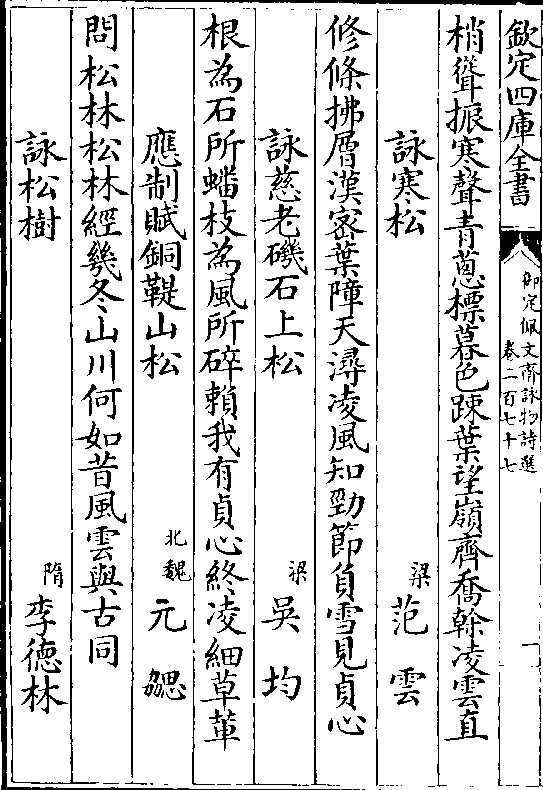 欽定四庫全書
御定佩文齋詠物詩選
卷二百七十七
梢聳振寒聲青蔥標暮色踈葉望嶺齊喬幹凌雲直
詠寒松 梁 范雲
修條拂層漢宻葉障天潯凌風知勁節負雪見貞心
詠慈老磯石上松 梁 吳均
根為石所蟠枝為風所碎賴我有貞心終凌細草輩
應制賦銅鞮山松 北魏 元勰
問松林松林經幾冬山川何如昔風雲與古同
詠松樹 隋 李德林